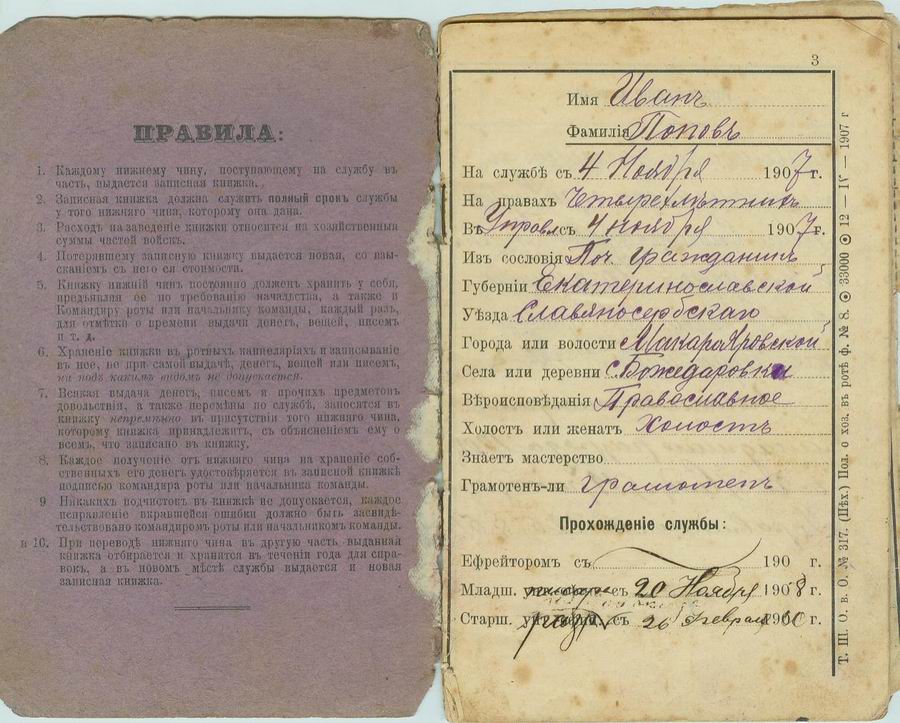 ПРАВИЛА:
1. Каждому нижнему чину, поступающему на службу въ
часть, выдается записная книжка.
2. Записная книжка должна служить полный срокъ службы
у того нижняго чина, которому она дана.
3. Расходъ на заведеніе книжки относится на хозяйственныя
суммы частей войскъ.
4. Потерявшему записную книжку выдается новая, со взы-
сканіемъ съ него ея стоимости.
5. Книжку нижній чинъ постоянно долженъ хранить у себя,
предъявляя ее по требованію начальства, а также и
Командиру роты или начальнику команды, каждый разъ,
для отмѣтки о времени выдачи денегъ, вещей, писемъ
и т. д.
6. Храненіе книжки въ ротныхъ канцеляріяхъ и записываніе
въ нее, не при самой выдачѣ, денегъ, вещей или писемъ,
ни подъ какимъ видомъ не допускается.
7. Всякая выдача денегъ, писемъ и прочихъ предметовъ
довольствія, а также перемѣны по службѣ, заносятся въ
книжку непремѣнно въ присутствіи того нижняго чина,
которому книжка принадлежитъ, съ объясненіемъ ему о
всемъ, что записано въ книжку.
8. Каждое полученіе отъ нижняго чина на храненіе соб-
ственныхъ его денегъ удостовѣряется въ записной книжкѣ
подписью командира роты или начальника команды.
9 Никакихъ подчистокъ въ книжкѣ не допускается, каждое
исправленіе вкравшейся ошибки должно быть засвидѣ-
тельствовано командиромъ роты или начальникомъ команды.
и 10. При переводѣ нижняго чина въ другую часть, выданная
книжка отбирается и хранится въ теченіи года для спра-
вокъ, а въ новомъ мѣстѣ службы выдается и новая
записная книжка.
3
Имя Иванъ
Фамилія Поповъ
На службѣ съ 4 Ноября 1907 г.
На правахъ Четырехлѣтникъ
Въ Управл съ 4 ноября 1907 г.
Изъ сословія Поч гражданинъ
Губерніи Екатеринославской
Уѣзда Славяносербскаго
Города или волости Макаро Яровской
Села или деревни с. Божедаровка
Вѣроисповѣданія Православное
Холостъ или женатъ Холостъ
Знаетъ мастерство
Грамотенъ-ли грамотенъ
Прохожденіе службы:
Ефрейторомъ съ 190 г.
Младш. съ 20 Ноября 1908 г.
Старш. съ 26 Февраля 1910 г.
Т. Ш. О. в. О. № 317. (Пѣх.) Пол. о хоз. въ ротѣ ф. № 8. 33000 12 — IV — 1907 г